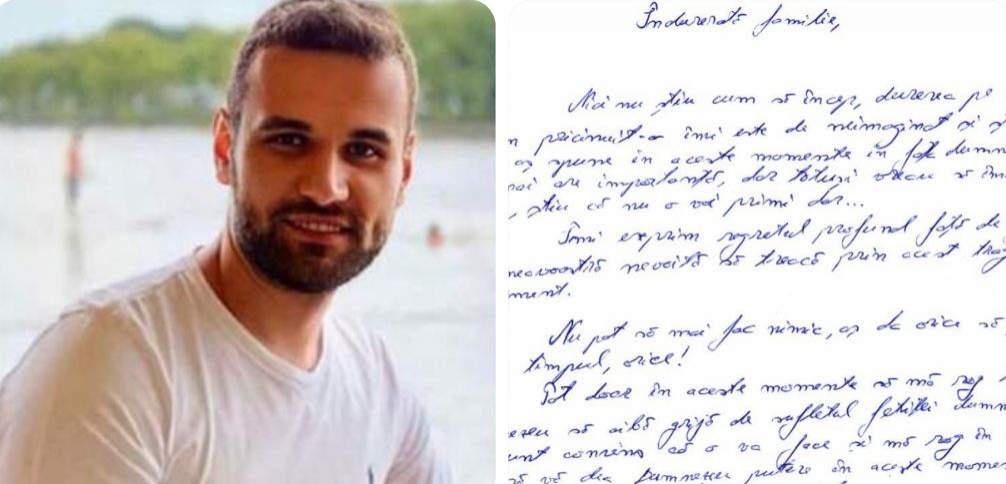 Îndurerată familie,
Nici nu știu cum să încep, durerea pe
n pricinuit-o îmi este de neimaginat și
aș spune în aceste momente în fața dumn
mai are importanță, dar totuși vreau să îm
, știu că nu o voi primi dar...
Îmi exprim regretul profund față de
neavoastră nevoită să treacă prin acest trag
ment.
Nu pot să mai fac nimic, aș da orice să
timpul, orice!
Pot doar în aceste momente să mă rog
ezeu să aibă grijă de sufletul fetiței dumn
unt convins că o va face și mă rog în
să vă dea Dumnezeu putere în aceste momen